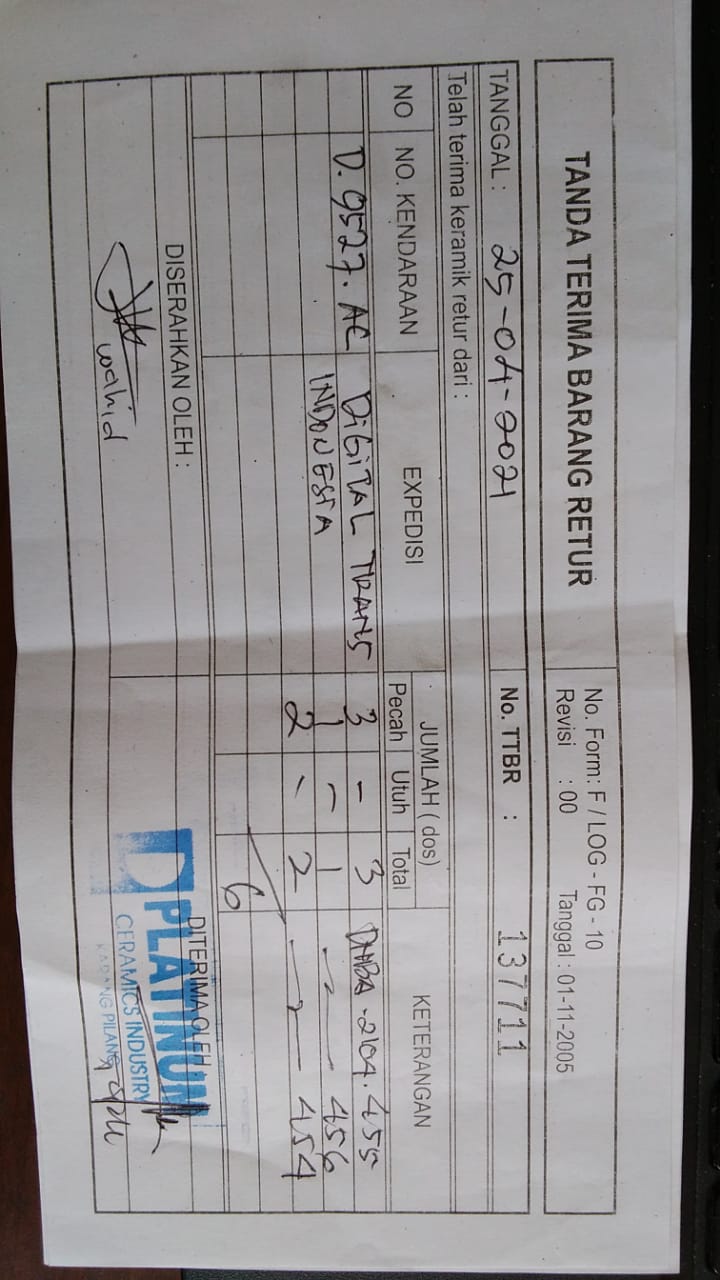 TANDA TERIMA BARANG RETUR
No. Form: F / LOG - FG - 10
Revisi : 00 Tanggal : 01-11-2005
TANGGAL : 25-04-2021 No. TTBR : 137711
Telah terima keramik retur dari :
NO NO. KENDARAAN EXPEDISI JUMLAH ( dos) KETERANGAN
Pecah Utuh Total
D. 9527. AE DIGITAL TRANS 3 - 3 DHBA .2104. 455
INDONESIA 1 - 1 -"- 456
2 - 2 -"- 454
6
DISERAHKAN OLEH : DITERIMA OLEH
PLATINUM
CERAMICS INDUSTRY
KARANG PILANG
wahid